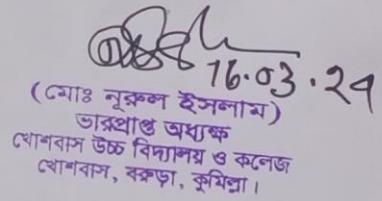 16.03.24
(মোঃ নূরুল ইসলাম)
ভারপ্রাপ্ত অধ্যক্ষ
খোশবাস উচ্চ বিদ্যালয় ও কলেজ
খোশবাস, বরুড়া, কুমিল্লা।